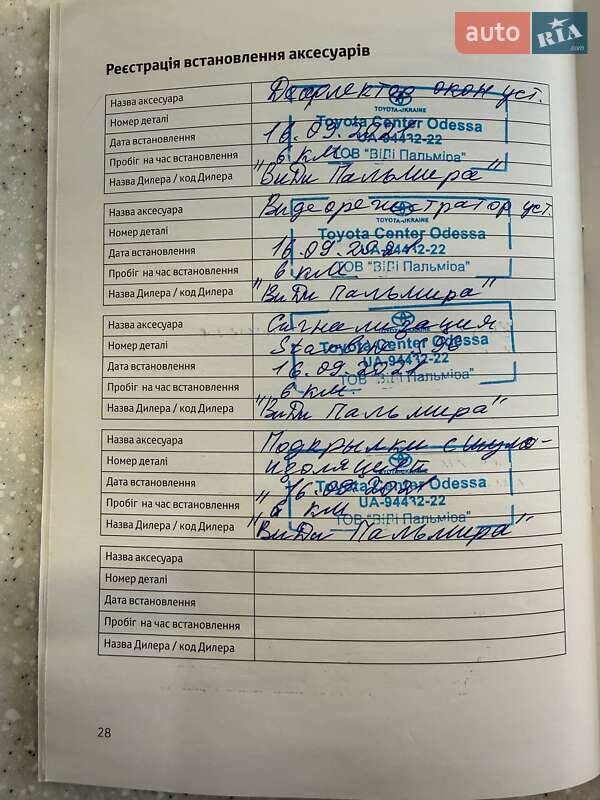 auto RIA .com
Реєстрація встановлення аксесуарів
Назва аксесуара Дефлектор окон уст.
Номер деталі
Дата встановлення 16.09.2021
Пробіг на час встановлення 6 км
Назва Дилера / код Дилера "ВиДи Пальмира"
TOYOTA-UKRAINE
Toyota Center Odessa
UA-94412-22
ТОВ "ВІДІ Пальміра"
Назва аксесуара Видеорегистратор уст.
Номер деталі
Дата встановлення 16.09.2021
Пробіг на час встановлення 6 км
Назва Дилера / код Дилера "ВиДи Пальмира"
TOYOTA-UKRAINE
Toyota Center Odessa
UA-94412-22
ТОВ "ВІДІ Пальміра"
Назва аксесуара Сигнализация
Номер деталі
Дата встановлення 16.09.2021
Пробіг на час встановлення 6 км.
Назва Дилера / код Дилера "ВиДи Пальмира"
Toyota Center Odessa
UA-94412-22
ТОВ "ВІДІ Пальміра"
Назва аксесуара Подкрылки с шумо-
Номер деталі изоляцией
Дата встановлення 16.09.2021
Пробіг на час встановлення 6 км
Назва Дилера / код Дилера "ВиДи Пальмира"
Toyota Center Odessa
UA-94412-22
ТОВ "ВІДІ Пальміра"
Назва аксесуара
Номер деталі
Дата встановлення
Пробіг на час встановлення
Назва Дилера / код Дилера
28